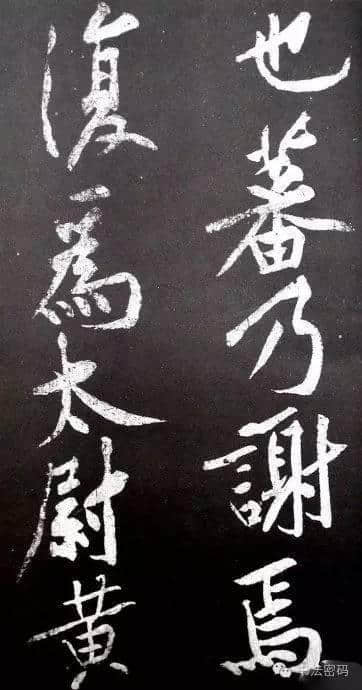 也蕃乃謝焉
復為太尉黃
书法密码